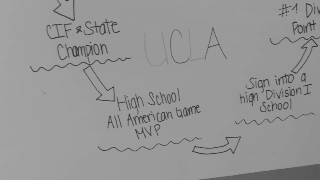 CIF & State
Champion
UCLA
#1 Div
Point
High School
All American Game
MVP
Sign into a
high Division I
School